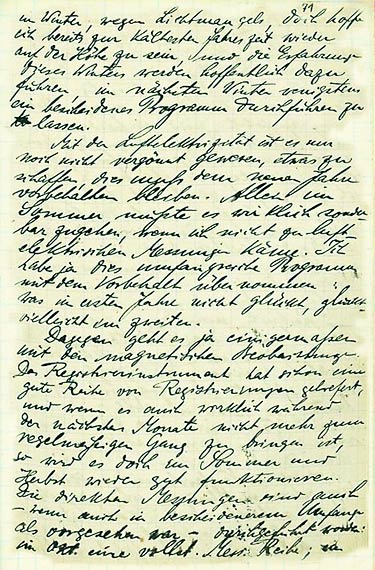 71
im Winter, wegen Lichtmangels, doch hoffe
ich bereits zur kältesten Jahreszeit wieder
auf der Höhe zu sein, und die Erfahrung
dieses Winters werden hoffentlich dazu
führen im nächsten Winter wenigstens
ein bescheidenes Programm durchführen zu
lassen.
Mit der Luftelektrizität ist es nun
noch nicht vergönnt gewesen, etwas zu
schaffen, dies muss dem neuen Jahre
vorbehalten bleiben. Allein im
Sommer müsste es wirklich sonder
bar zugehen, wenn ich nicht zu luft
elektrischen Messungen käme. Ich
habe ja dies umfangreiche Programm
mit dem Vorbehalt übernommen:
was im ersten Jahre nicht glückt, glückt
vielleicht im zweiten.
Dagegen geht es ja einigermassen
mit den magnetischen Beobachtungen.
Das Registrierinstrument hat schon eine
gute Reihe von Registrierungen geliefert,
und wenn es auch wirklich während
der nächsten Monate nicht mehr zum
regelmässigen Gang zu bringen ist,
so wird es doch im Sommer und
Herbst wieder gut funktionieren.
Die direkten Messungen sind auch
– wenn auch in bescheidenerem Umfange
als vorgesehen war – durchgeführt worden:
im Okt. eine vollst. Mess. Reihe, im